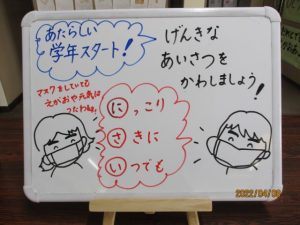 あたらしい
学年スタート！
げんきな
あいさつを
かわしましょう！
マスクをしていても
えがおや元気は
つたわるよ。
にっこり
さきに
いつでも
2022/04/08